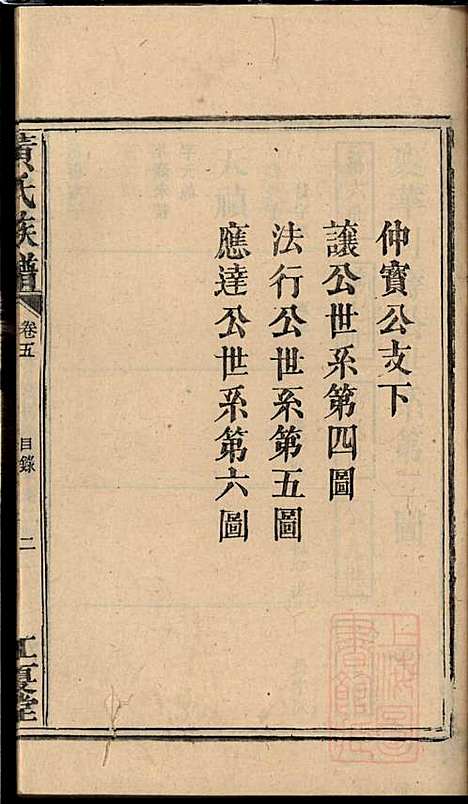 仲寶公支下
讓公世系第四圖
法行公世系第五圖
應達公世系第六圖
黄氏族譜
卷五
目錄
二
江夏堂